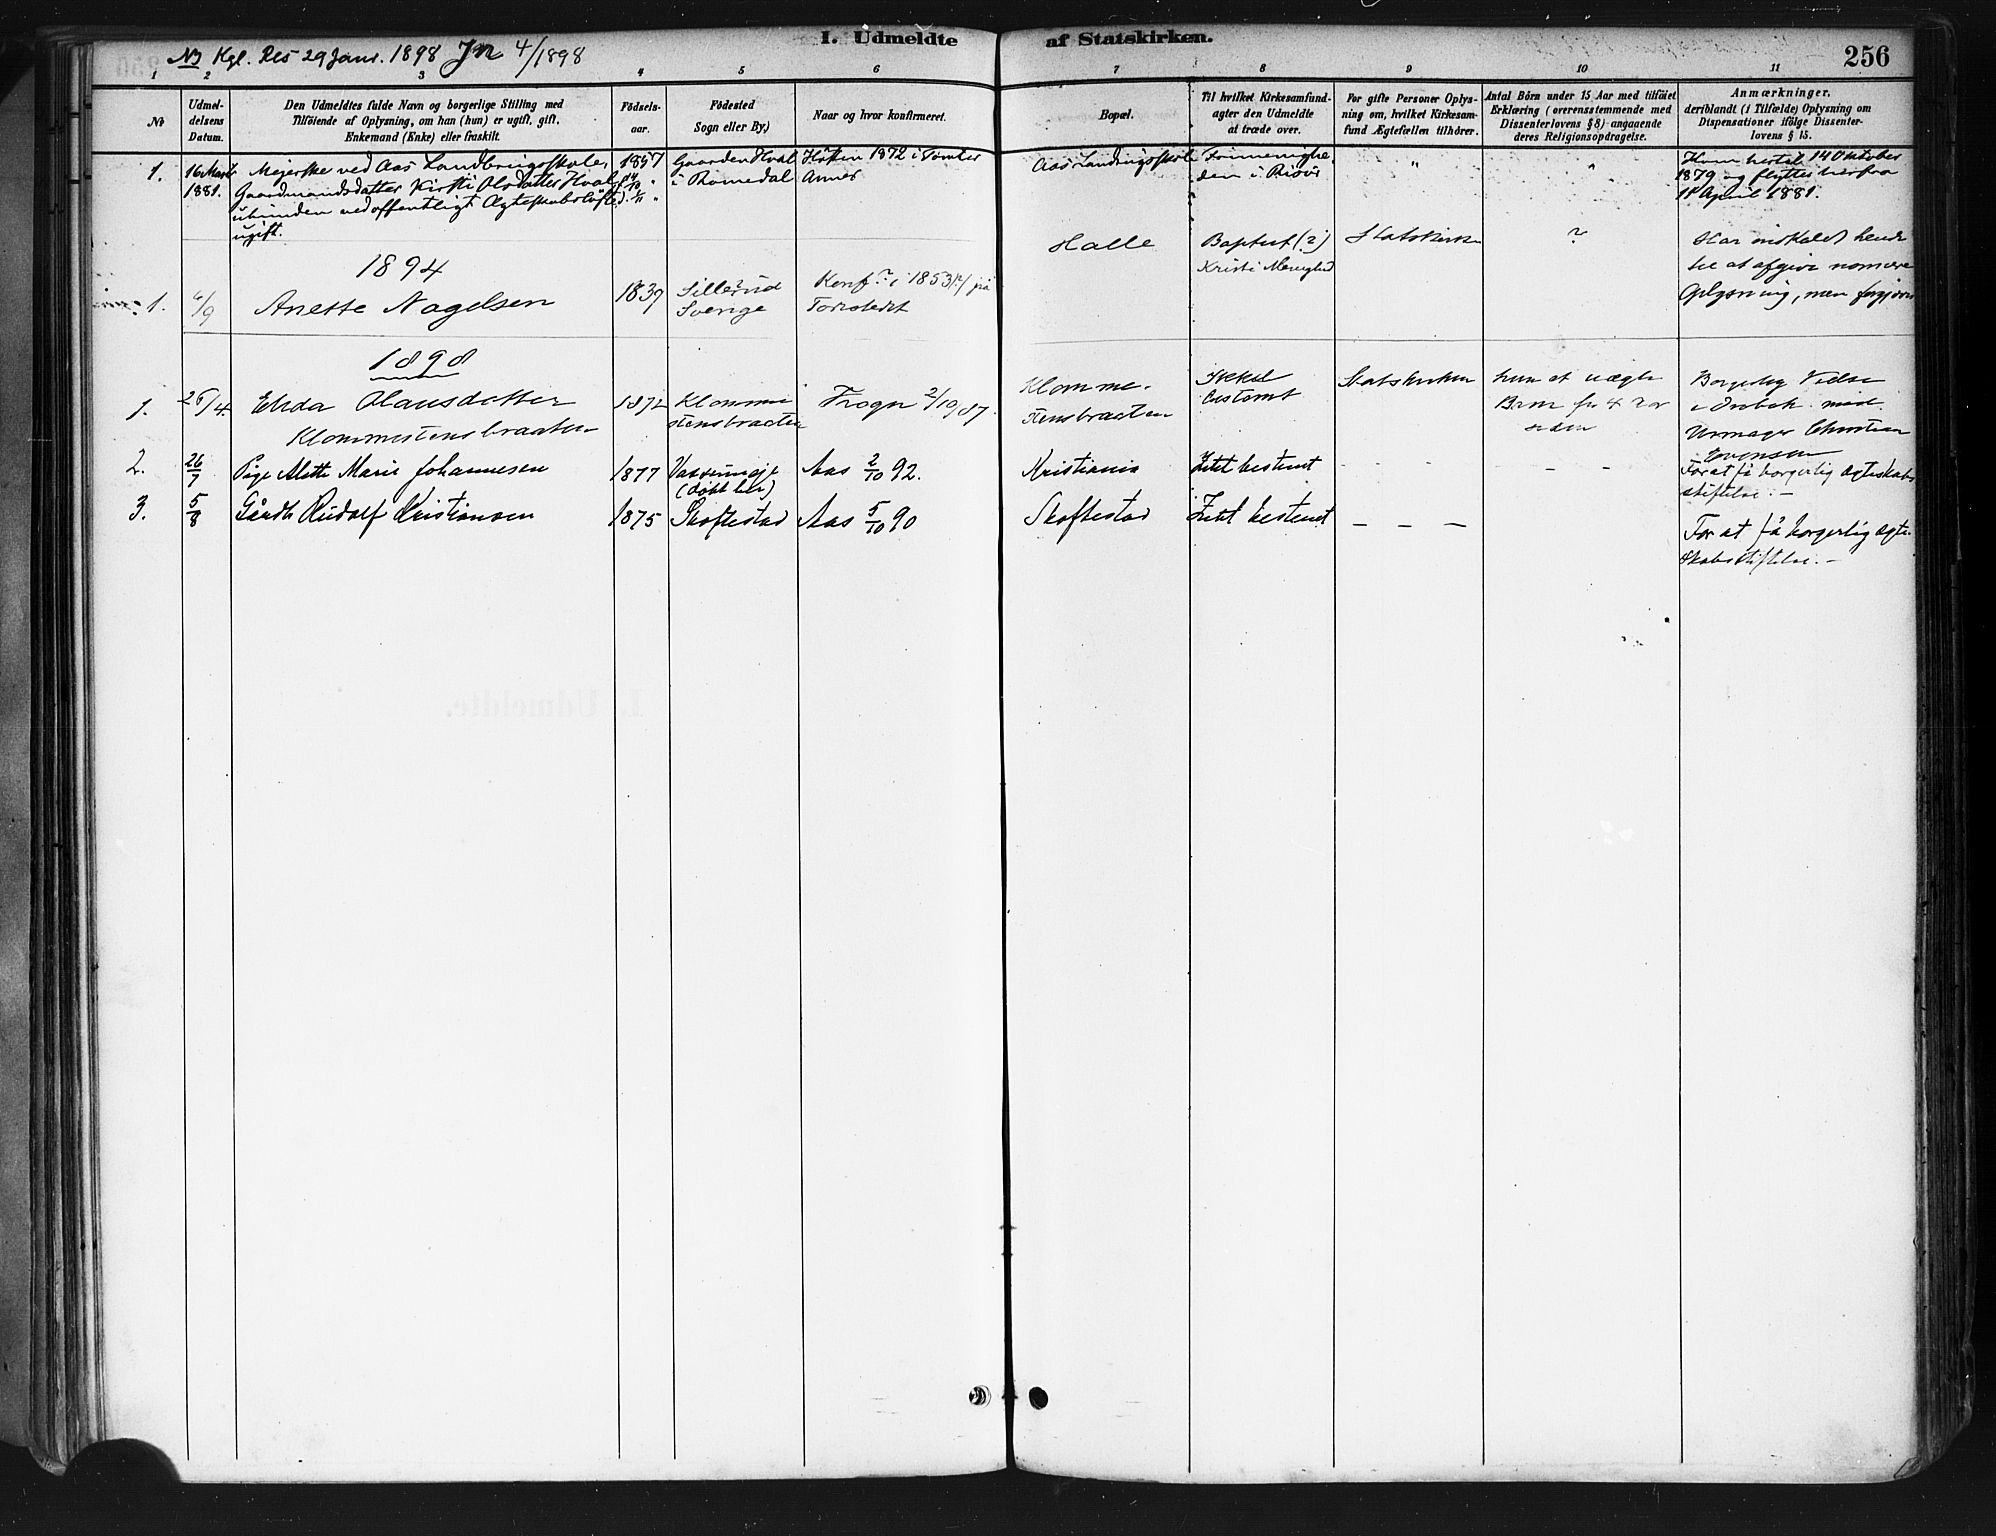 NB Kgl. Res 29 Janr. 1898 Jn 4/1898
I. Udmeldte af Statskirken.
256
1 2 3 4 5 6 7 8 9 10 11
No
Udmel-
delsens
Datum.
Den Udmeldtes fulde Navn og borgerlige Stilling med
Tilföiende af Oplysning, om han (hun) er ugift, gift,
Enkemand (Enke) eller fraskilt.
Födsels-
aar.
Födested
Sogn eller By.)
Naar og hvor konfirmeret.
Bopæl.
Til hvilket Kirkesamfund-
agter den Udmeldte
at træde over.
For gifte Personer Oplys-
ning om, hvilket Kirkesam-
fund Ægtefællen tilhörer.
Antal Börn under 15 Aar med tilföiet
Erklæring (overensstemmende med
Dissenterlovens § 8) angaaende
deres Religionsopdragelse.
Anmærkninger,
deriblandt (i Tilfælde) Oplysning om
Dispensationer ifölge Dissenter-
lovens § 15.
1.
16 Marts
1881.
Mejerske ved Aas Landbrugsskole,
Gaardmandsdatter Kirsti Olsdatter Hval,
ubunden ved offentligt Ægteskabslöfte
ugift.
1857
Gaarden Hval
i Romedal
Hösten 1872 i Tomter
Annex
Aas Landbrugsskole
Frimenighe-
den i Risör
"
"
"
Kom hertil 14 Oktober
1879 og flytter herfra
14 April 1881.
1894
1.
6/9
Anette Nagelsen
1839
Sillerud
Sverige
Konf? i 1853(?) på
Halle
Baptist (?)
Kristi Menighed
Statskirken
?
Har indkaldt hende
til at afgive nærmere
Oplysning, men forgjæves
1898
1.
26/4
Elida Olausdatter
Klommestensbraaten
1872
Klomme
stensbraaten
Frogn 2/10/87.
Klomme-
stensbraaten
Ikke
bestemt
Statskirken
hun et uægte
Barn for 4 Aar
siden
Borgerlig Vielse
i Dröbak med
Urmager Christian
Evensen
2.
26/7
Pige Alette Marie Johannesen
1877
(døbt her)
Aas 2/10 92.
Kristiania
Ikke bestemt
- - -
For at få borgerlig Ægteskabs
stiftelse. -
3.
5/8
Rudolf Kristiansen
1875
Skoftestad
Aas 5/10 90
Skoftestad
Ikke bestemt
- - -
For at få borgerlig Ægte-
skabsstiftelse. -
I. Udmeldte.